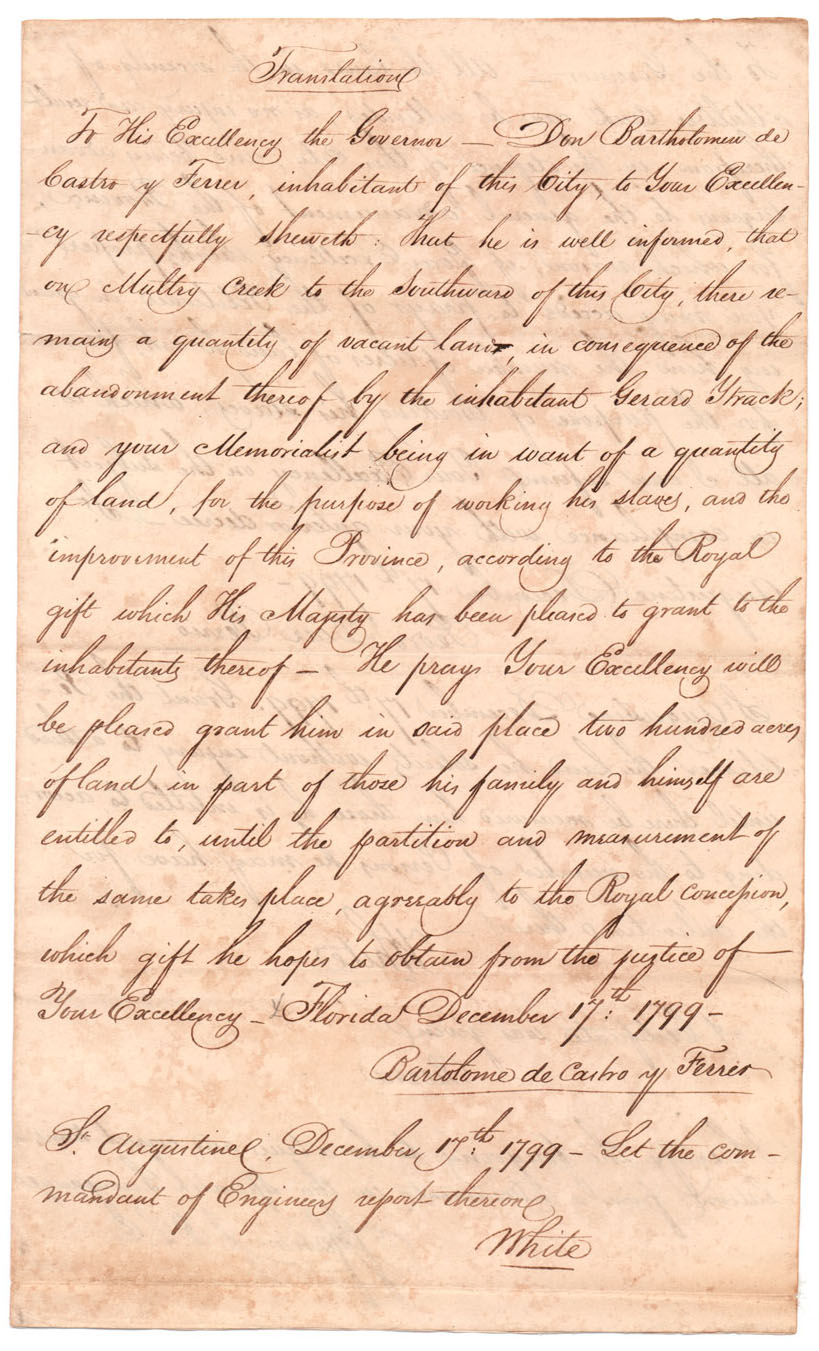 Translation
To His Excellency the Governor — Don Bartholomew de
Castro y Ferrer, inhabitant of this City, to Your Excellen-
-cy respectfully sheweth: That he is well informed, that
on Multry Creek to the Southward of this City, there re-
mains a quantity of vacant land, in consequence of the
abandonment thereof by the inhabitant Gerard Strack;
and your Memorialist being in want of a quantity
of land, for the purpose of working his slaves, and the
improvement of this Province, according to the Royal
gift which His Majesty has been pleased to grant to the
inhabitants thereof — He prays Your Excellency will
be pleased grant him in said place two hundred acres
of land in part of those his family and himself are
entitled to, until the partition and measurement of
the same takes place, agreeably to the Royal concession,
which gift he hopes to obtain from the justice of
Your Excellency — Florida December 17th: 1799 —
Bartolome de Castro y Ferrer
St. Augustine, December 17th: 1799 — Let the com-
mandant of Engineers report thereon
White